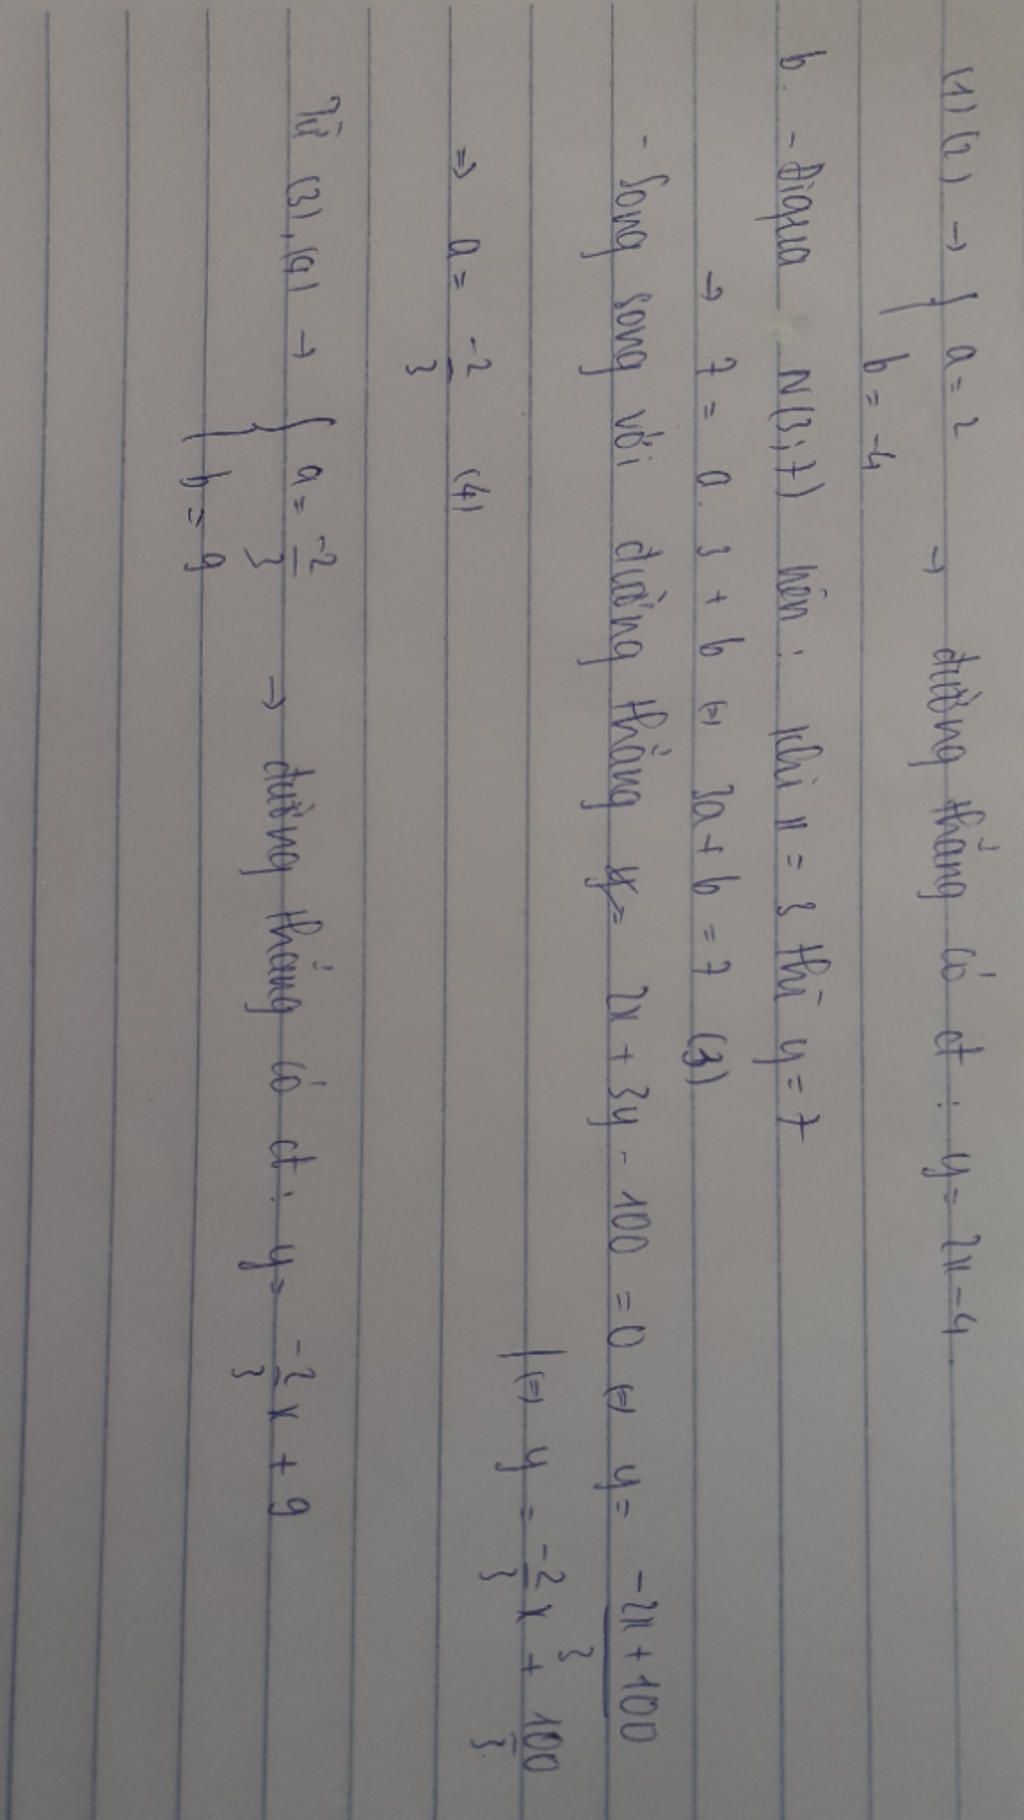 (1) (2) → { a = 2 → đường thẳng có ct : y = 2x - 4.
b = -4
b. - Đi qua N(3;7) nên : khi x = 3 thì y = 7
→ 7 = a. 3 + b (=) 3a + b = 7 (3)
- Song song với đường thẳng y= 2x + 3y - 100 = 0 (=) y = -2x + 100
3
(=) y = -2/3 x + 100/3
=> a = -2/3 (4)
Từ (3), (4) → { a = -2/3 → đường thẳng có ct : y = -2/3 x + 9
b = 9